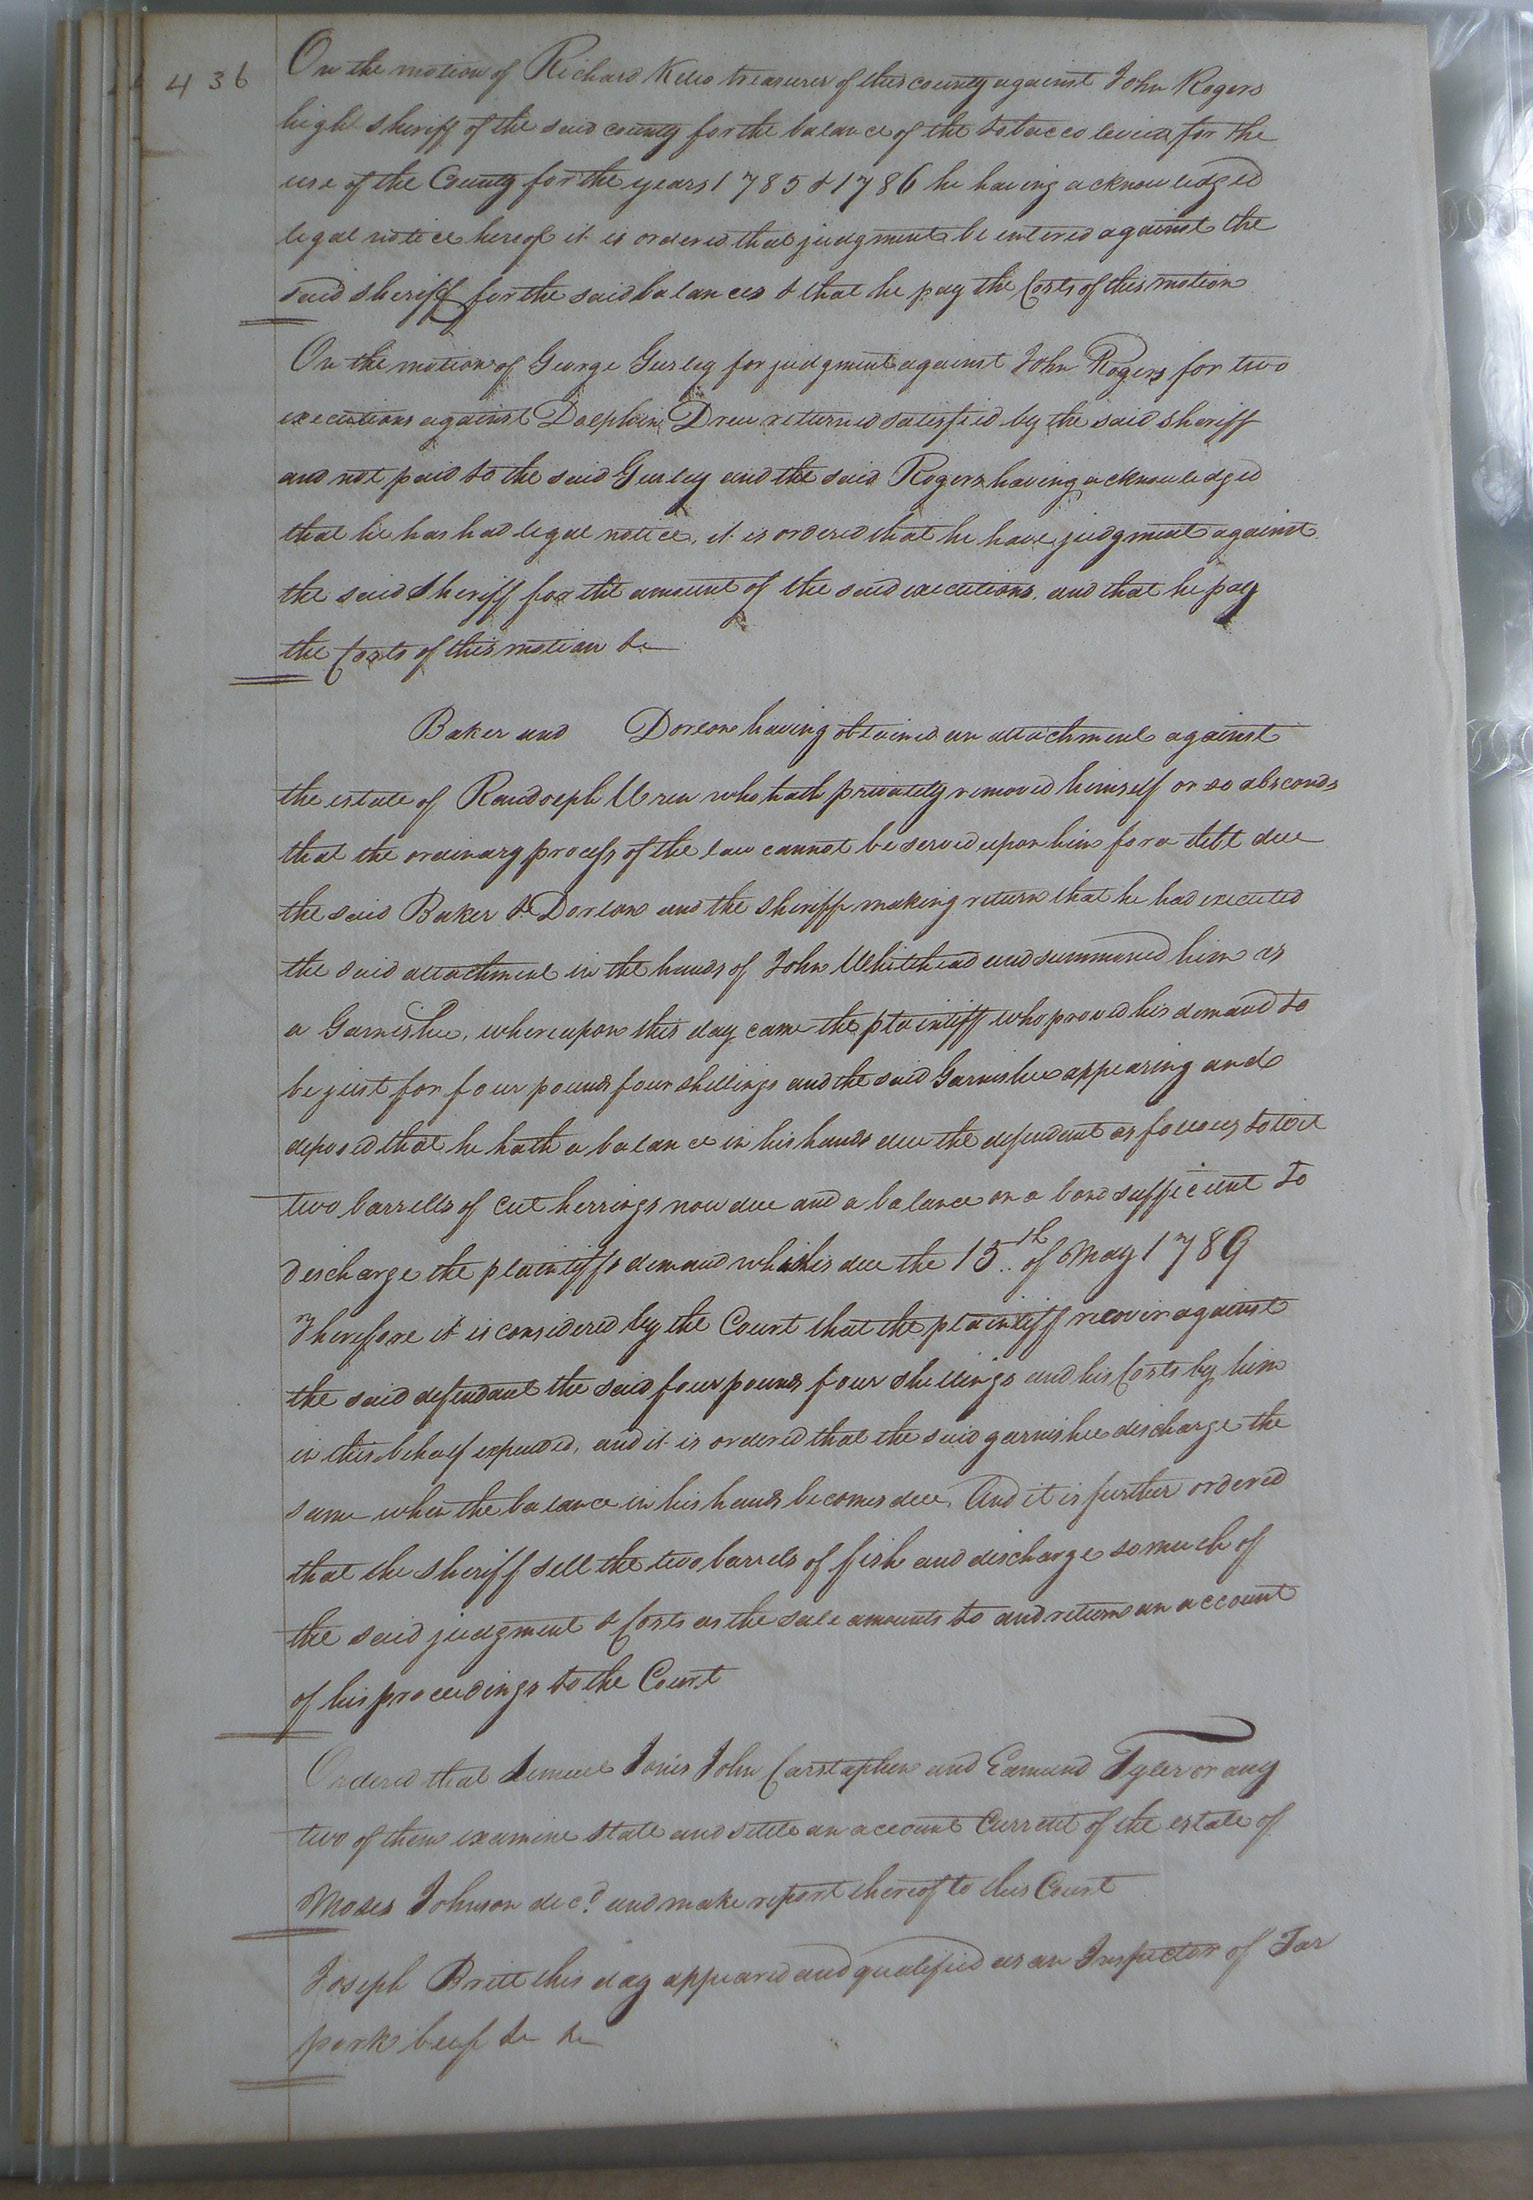 436
On the motion of Richard Kello treasurer of this county against John Rogers
high sheriff of the said county for the balance of the tobacco levied for the
use of the County for the years 1785 & 1786 he having acknowledged
legal notice hereof it is ordered that judgment be entered against the
said sheriff for the said balances & that he pay the Costs of this motion
On the motion of George Gurley for judgment against John Rogers for two
executions against Dolphin Drew returned satisfied by the said sheriff
and not paid to the said Gurley and the said Rogers having acknowledged
that he has had legal notice, it is ordered that he have judgment against
the said sheriff for the amount of the said executions, and that he pay
the Costs of this motion &c
Baker and Dorlon having obtained an attachment against
the estate of Randolph Uren who hath privately removed himself or so absconds
that the ordinary process of the law cannot be served upon him for a debt due
the said Baker & Dorlon and the sheriff making return that he had executed
the said attachment in the hands of John Whitehead and summoned him as
a Garnishee, whereupon this day came the plaintiff who proved his demand to
be just for four pounds four shillings and the said Garnishee appearing and
deposed that he hath a balance in his hands due the defendant as follows to wit
two barrells of cut herrings now due and a balance on a bond sufficient to
discharge the plaintiffs demand which is due the 15th of May 1789
Therefore it is considered by the Court that the plaintiff recover against
the said defendant the said four pounds four shillings and his Costs by him
in this behalf expended, and it is ordered that the said garnishee discharge the
same when the balance in his hands becomes due, And it is further ordered
that the sheriff sell the two barrels of fish and discharge so much of
the said judgment & Costs as the sale amounts to and return an account
of his proceedings to the Court
Ordered that Lemuel Jones John Carstaphen and Edmund Tyler or any
two of them examine state and settle an account Current of the estate of
Moses Johnson decd and make report thereof to this Court
Joseph Britt this day appeared and qualified as an Inspector of Tar
pork beef &c &c